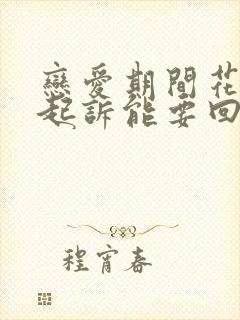 戀愛期間花
起訴能要回
程宵春